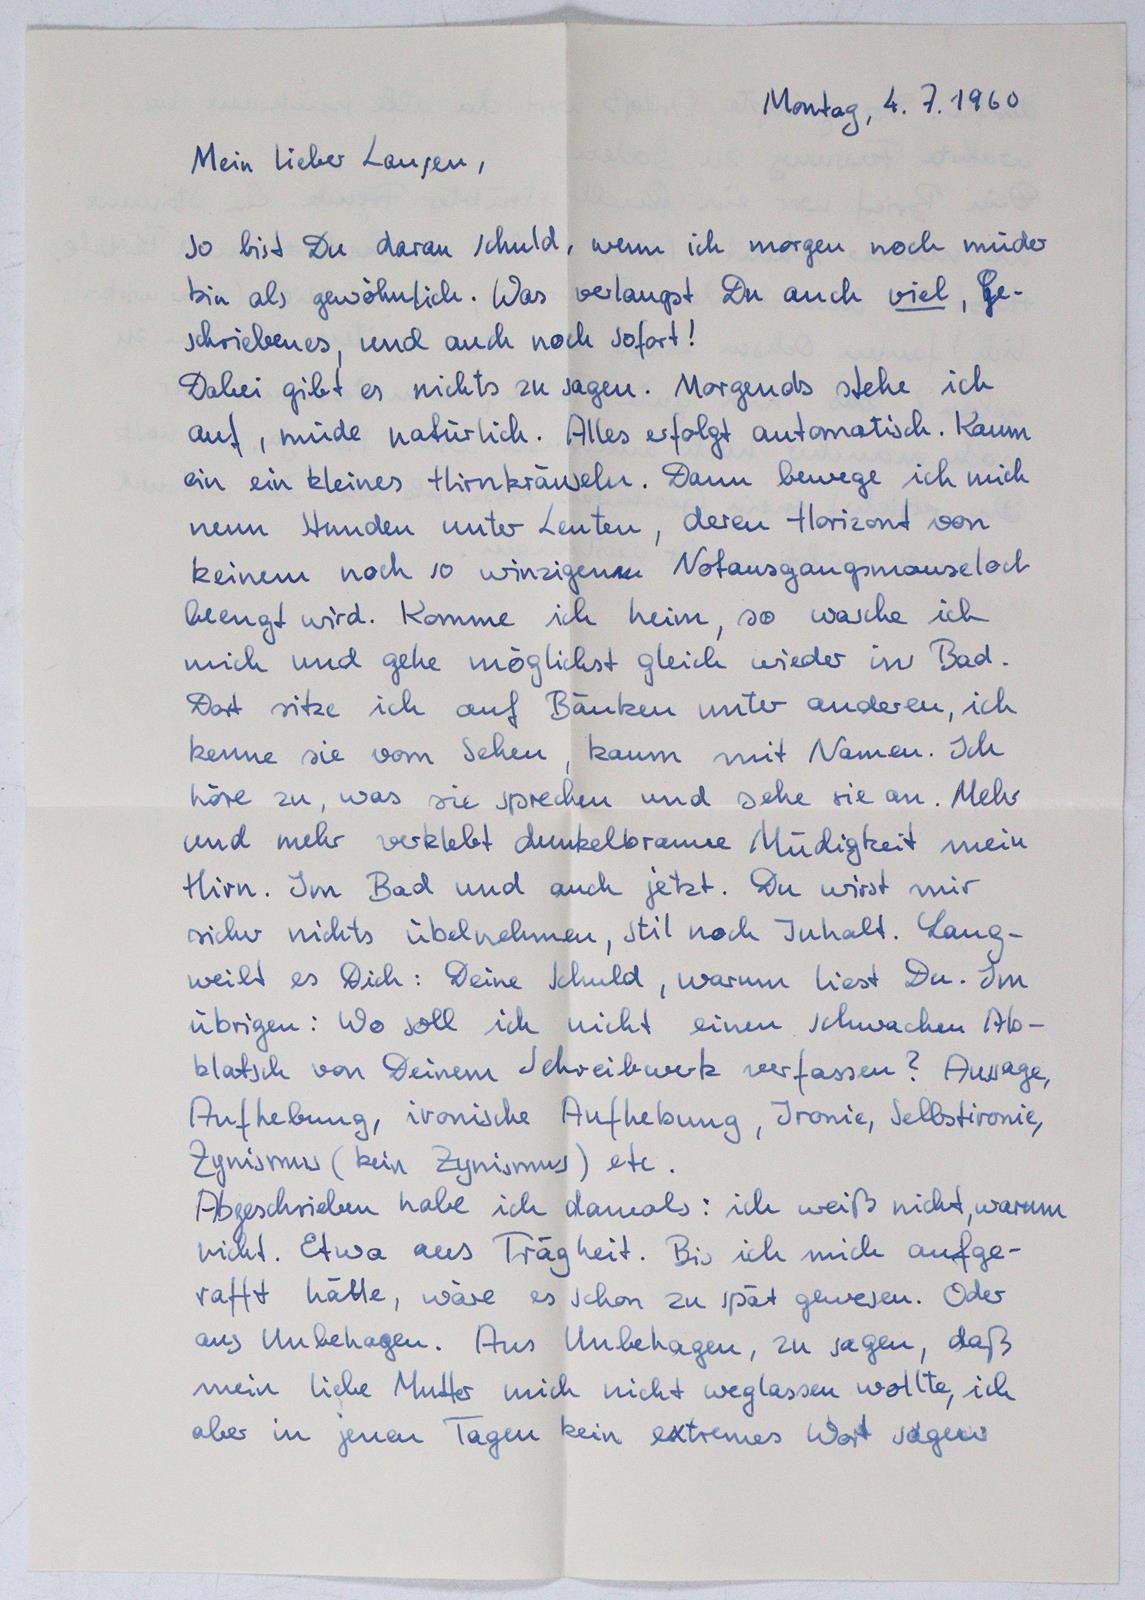 Montag, 4. 7. 1960
Mein lieber Langen,
so bist Du daran schuld, wenn ich morgen noch müder
bin als gewöhnlich. Was verlangst Du auch viel, Ge-
schriebenes, und auch noch sofort!
Dabei gibt es nichts zu sagen. Morgends stehe ich
auf, müde natürlich. Alles erfolgt automatisch. Kaum
ein ein kleines Hirnkräuseln. Dann bewege ich mich
neun Stunden unter Leuten, deren Horizont von
keinem noch so winzigen Notausgangsmauseloch
beengt wird. Komme ich heim, so wasche ich
mich und gehe möglichst gleich wieder ins Bad.
Dort sitze ich auf Bänken unter anderen, ich
kenne sie vom Sehen, kaum mit Namen. Ich
höre zu, was sie sprechen und sehe sie an. Mehr
und mehr verklebt dunkelbraune Müdigkeit mein
Hirn. Im Bad und auch jetzt. Du wirst mir
sicher nichts übelnehmen, Stil noch Inhalt. Lang-
weilt es Dich: Deine Schuld, warum liest Du. Im
übrigen: Wo soll ich nicht einen schwachen Ab-
klatsch von Deinem Schreibwerk verfassen? Aussage,
Aufhebung, ironische Aufhebung, Ironie, Selbstironie,
Zynismus (kein Zynismus) etc.
Abgeschrieben habe ich damals: ich weiß nicht, warum
nicht. Etwa aus Trägheit. Bis ich mich aufge-
rafft hätte, wäre es schon zu spät gewesen. Oder
aus Unbehagen. Aus Unbehagen, zu sagen, daß
mein liebe Mutter mich nicht weglassen wollte, ich
aber in jenen Tagen kein extremes Wort sagen